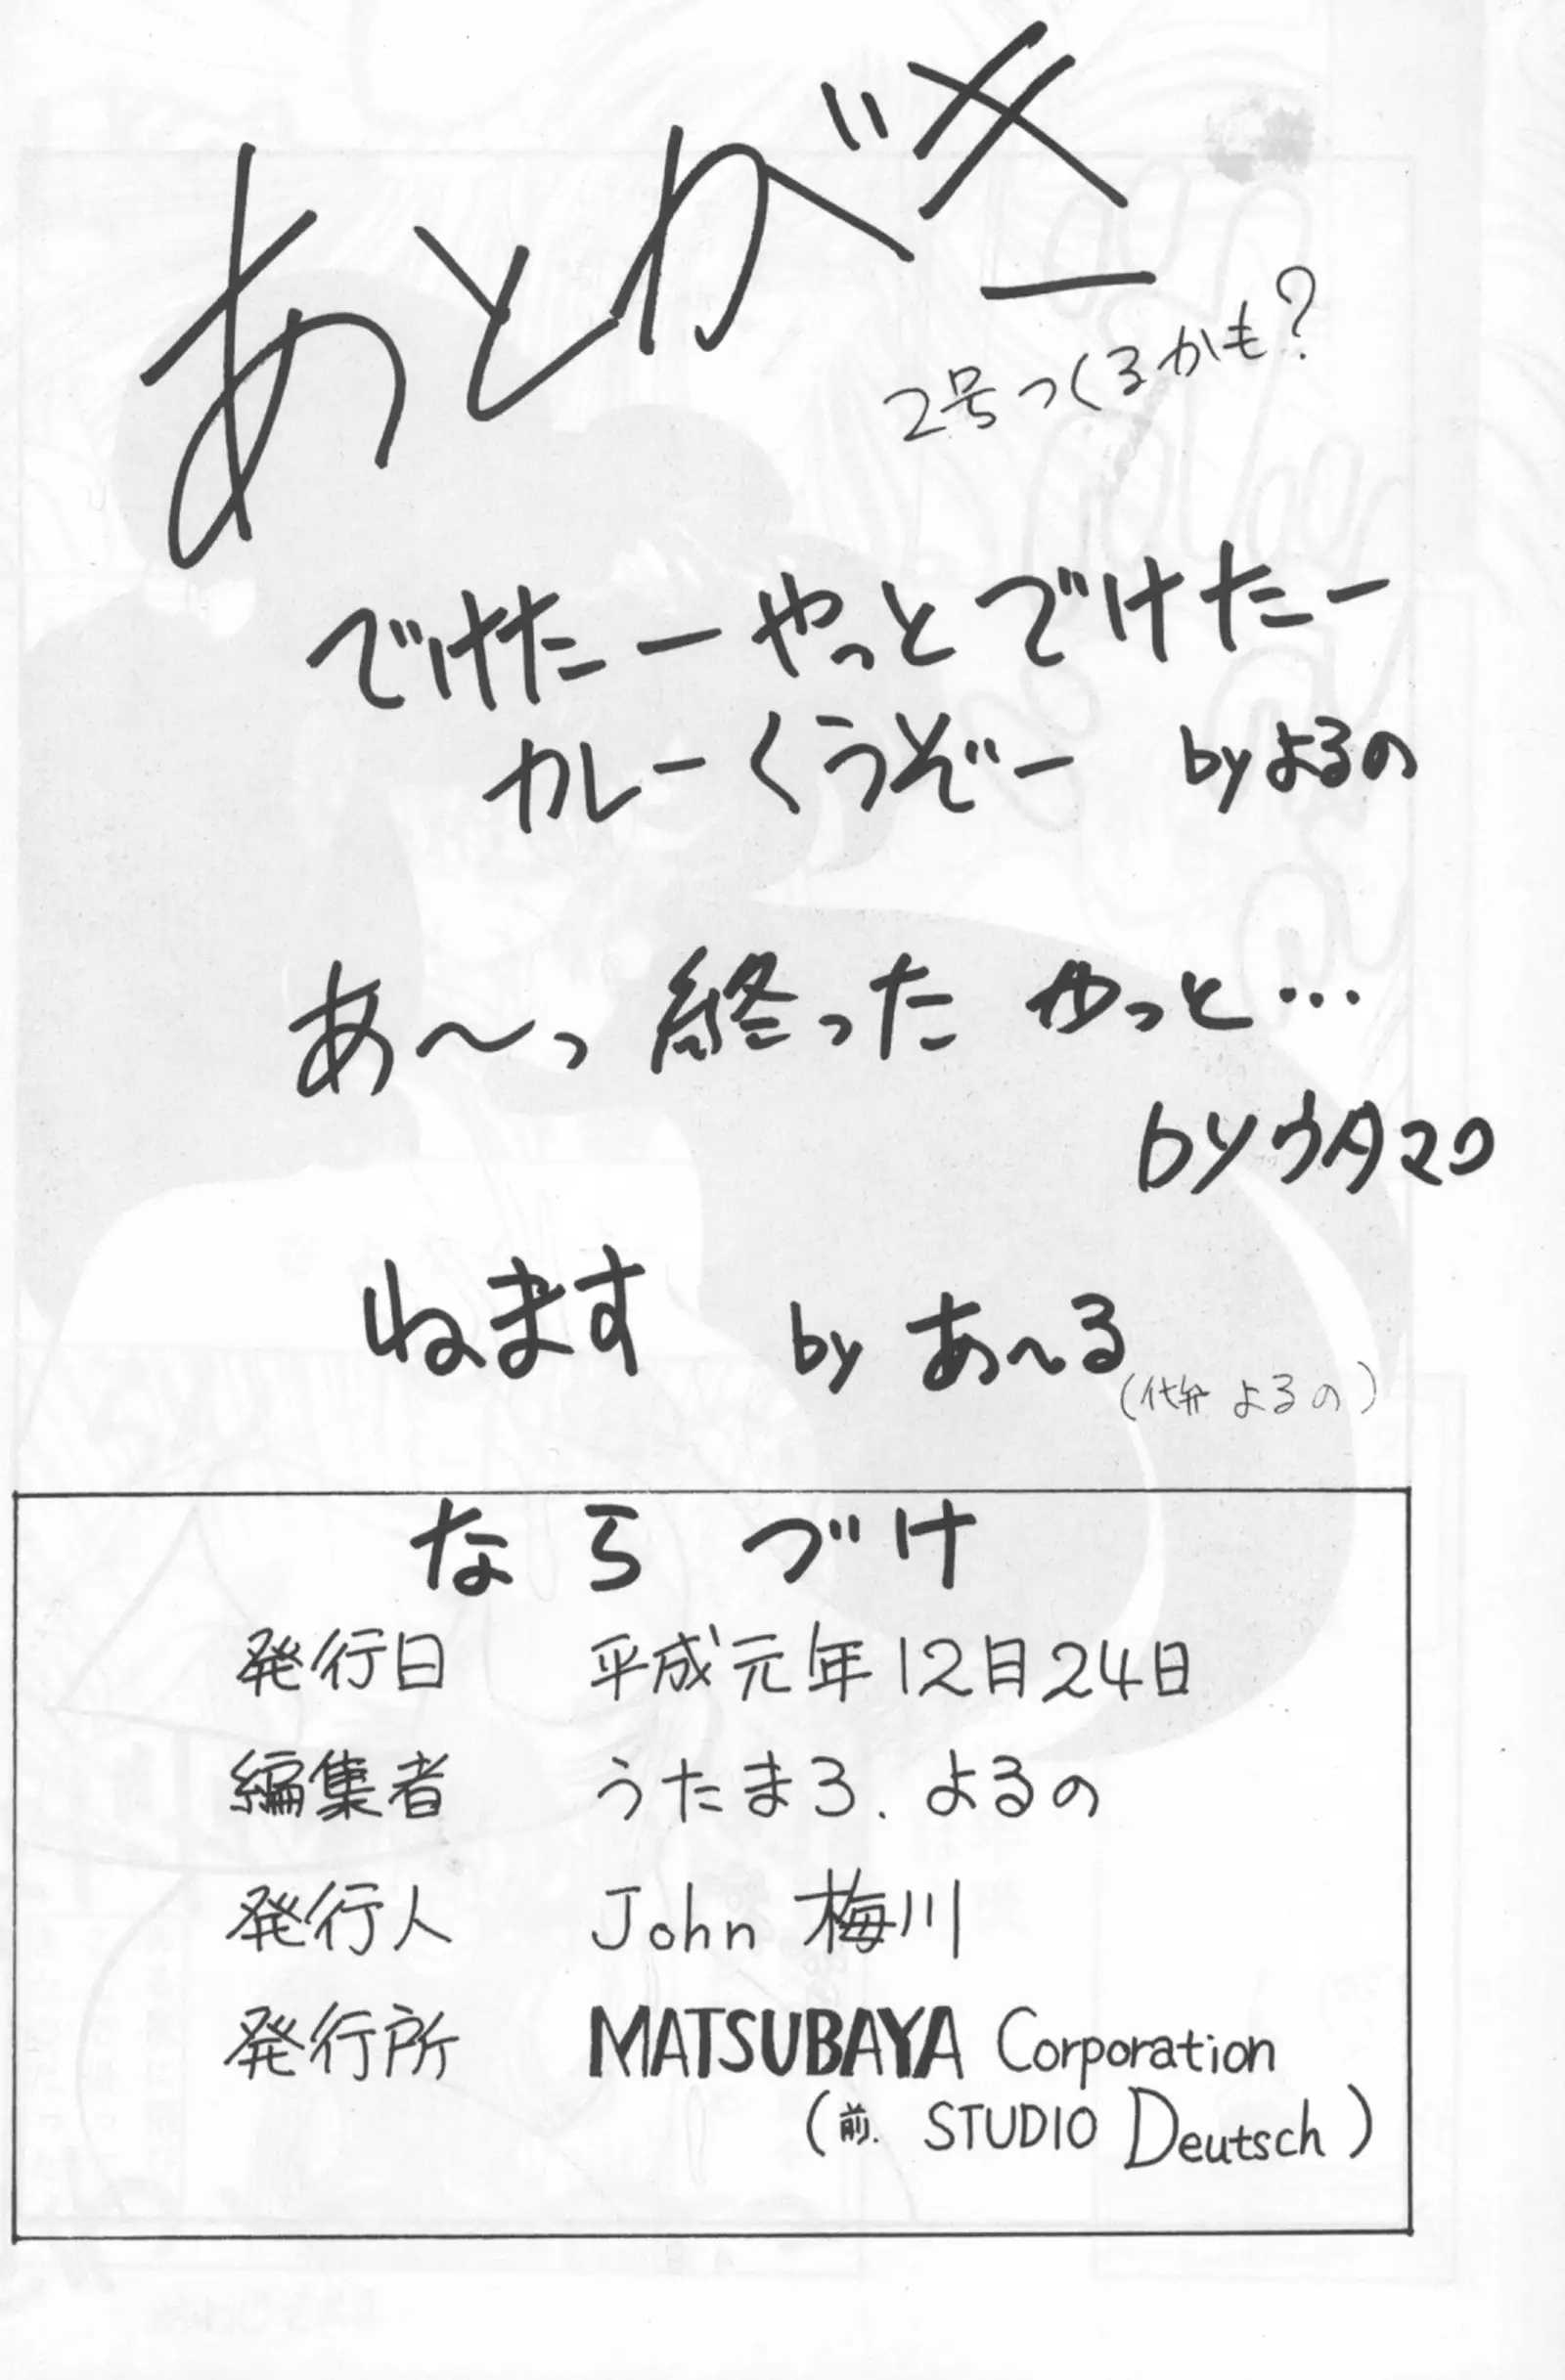 あとがき
2号つくるかも?
でけたーやっとでけたー
カレーくうぞー byよるの
あ〜っ終った やっと…
byウタマロ
ねます by あ〜る
(代弁 よるの)
ならづけ
発行日 平成元年12月24日
編集者 うたまろ.よるの
発行人 John 梅川
発行所 MATSUBAYA Corporation
(前. STUDIO Deutsch)